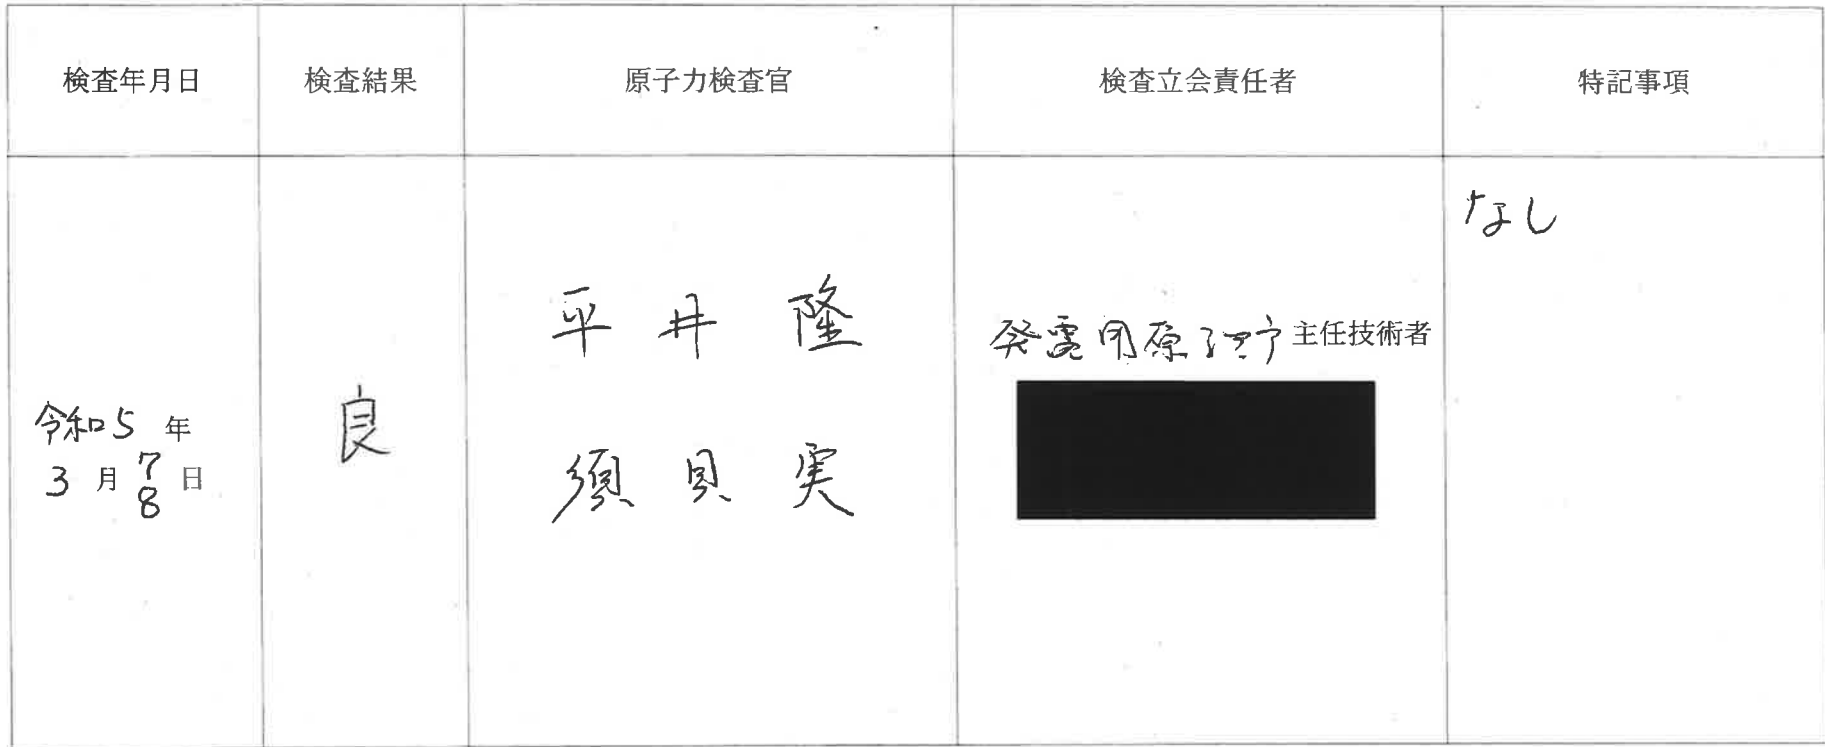 検査年月日
検査結果
原子力検査官
検査立会責任者
特記事項
令和5年
3月7日
8
良
平井隆
須貝実
発電用原子炉主任技術者
なし